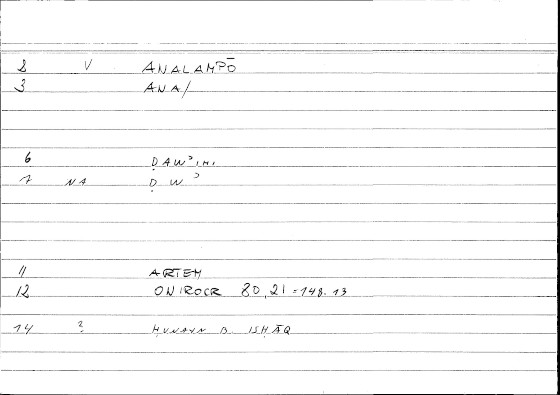 2 V ANALAMPŌ
3 ANA/
6 ḌAWʾIHI
7 NA Ḍ Wʾ
11 ARTEM
12 ONIROCR 80,21=148.13
14 ? ḤUNAYN B. ISḤĀQ